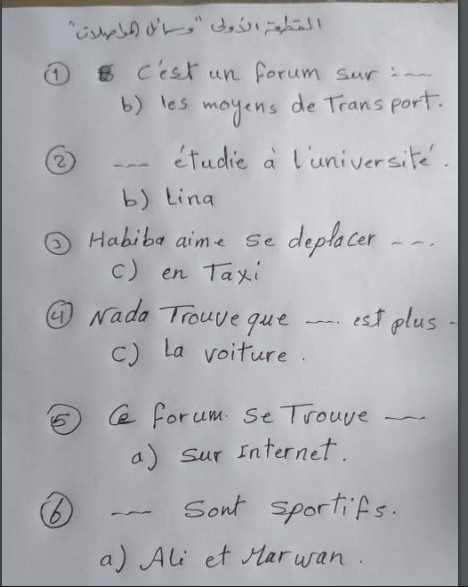 القطعة الأولى "وسائل المواصلات"
① C'est un forum sur : ---
b) les moyens de Transport.
② --- étudie à l'université.
b) Lina
③ Habiba aime se deplacer ---.
c) en Taxi
④ Nada Trouve que ---. est plus -
c) La voiture.
⑤ Ce forum se Trouve ---
a) sur Internet.
⑥ --- sont sportifs.
a) Ali et Marwan.